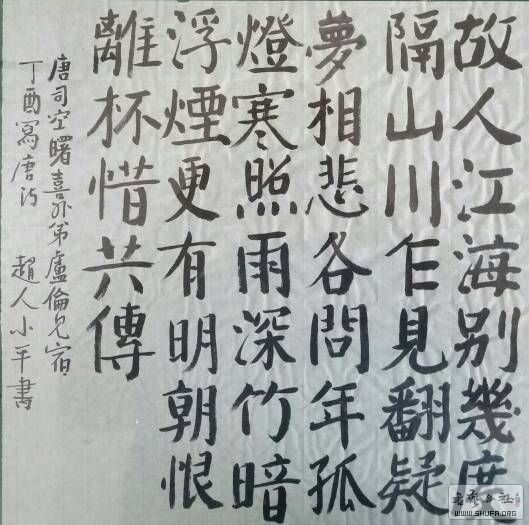 故人江海别幾度
隔山川乍見翻疑
夢相悲各問年孤
燈寒照雨深竹暗
浮煙更有明朝恨
離杯惜共傳
唐司空曙喜外弟盧倫見宿
丁酉寫唐詩 趙人小平書
书艺公社
WWW.SHUFA.ORG